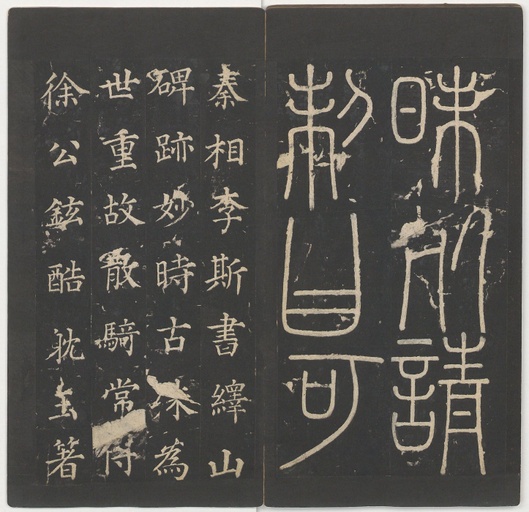 昧死請
制曰可
秦相李斯書繹山
碑跡妙時古殊為
世重故散騎常侍
徐公鉉酷躭玉著